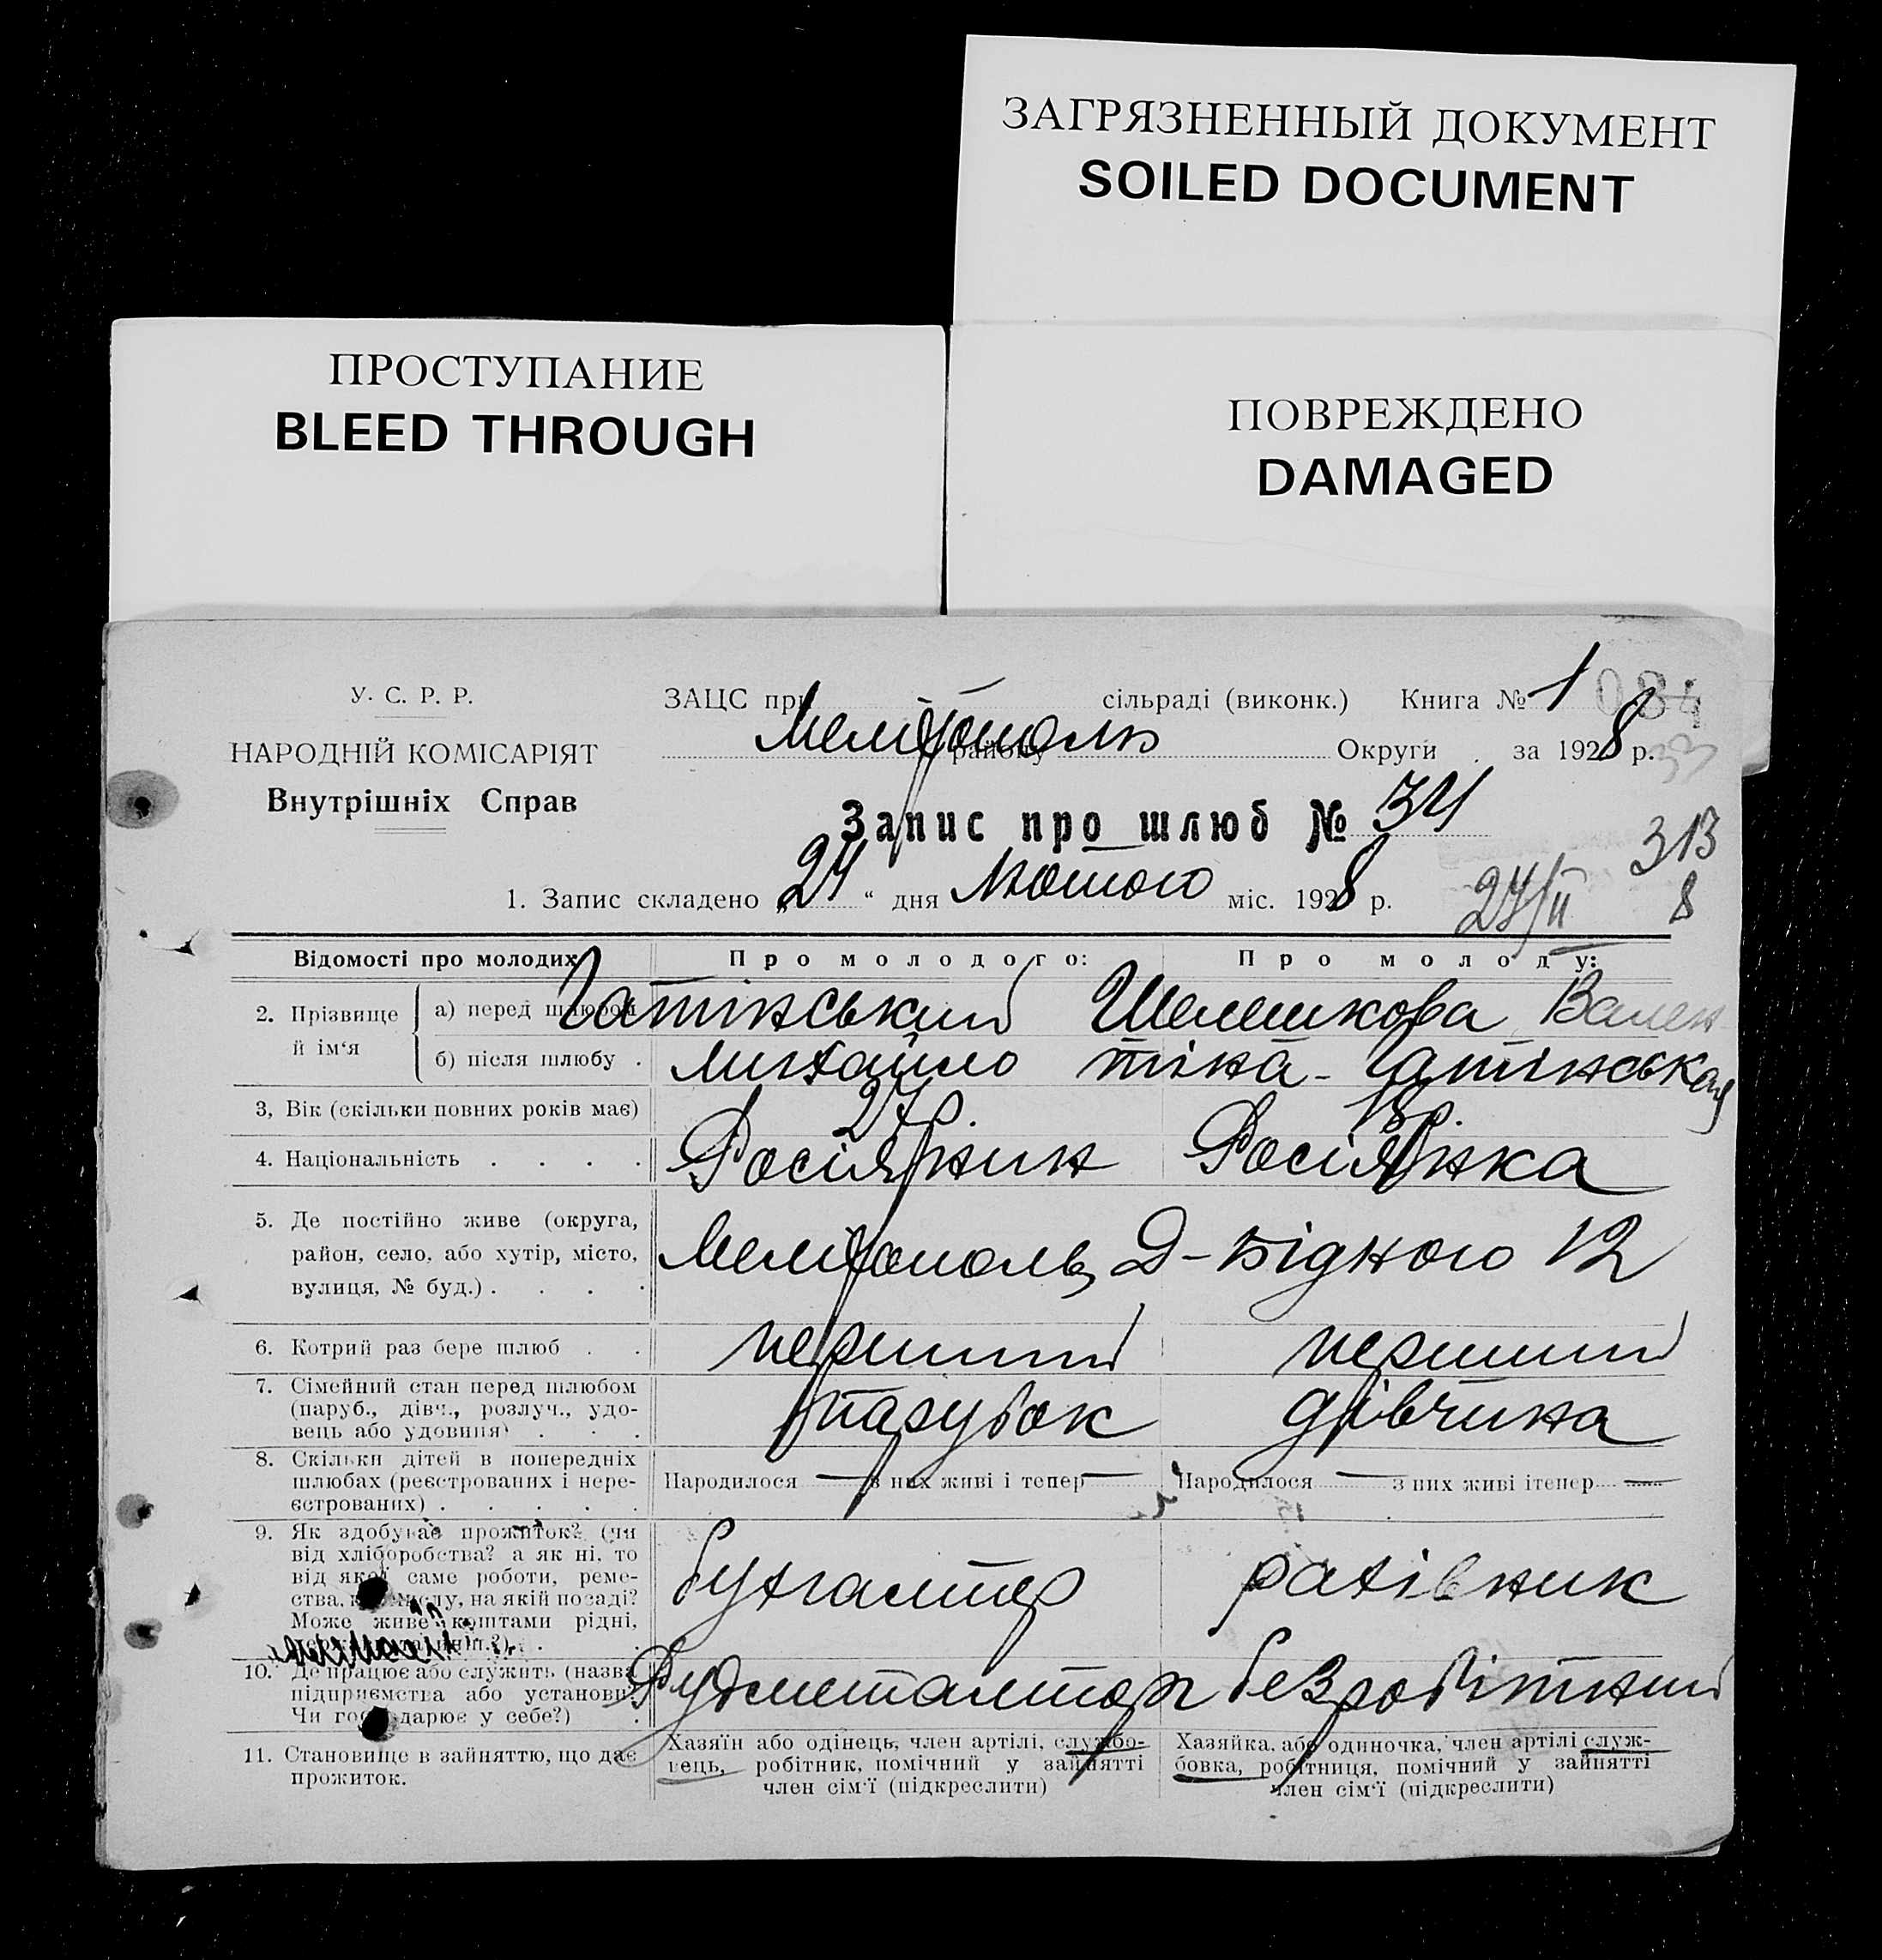 ЗАГРЯЗНЕННЫЙ ДОКУМЕНТ
SOILED DOCUMENT
ПРОСТУПАНИЕ
BLEED THROUGH
ПОВРЕЖДЕНО
DAMAGED
У. С. Р. Р.
НАРОДНІЙ КОМІСАРІЯТ
Внутрішніх Справ
ЗАЦС при сільраді (виконк.) Книга № 1 084
Мелітополь району Округи за 1928 р. 33
Запис про шлюб № 34
313
1. Запис складено „24“ дня Лютого міс. 1928 р. 24/II 8
Відомості про молодих Про молодого: Про молоду:
2. Прізвище й ім‘я
а) перед шлюбом Гатінський Шелешкова Вален-
б) після шлюбу . Михайло тіна - Гатінська
3, Вік (скільки повних років має) 27р. 18р.
4. Національність . . . . Росіянин Росіянка
5. Де постійно живе (округа, район, село, або хутір, місто, вулиця, № буд.) . . . . Мелітополь, Д-Бідного 12
6. Котрий раз бере шлюб . . перший перший
7. Сімейний стан перед шлюбом (паруб., дівч., розлуч., удовець або удовиця) . . . парубок дівчина
8. Скільки дітей в попередніх шлюбах (реєстрованих і нереєстрованих) . . . . . Народилося — з них живі і тепер — Народилося — з них живі і тепер —
9. Як здобуває прожиток? (чи від хліборобства? а як ні, то від якої саме роботи, ремества, промислу, на якій посаді? Може живе коштами рідні, бухгалтер рахівник
10. Де працює або служить (назва підприємства або установи? Чи господарює у себе?) . Рудметалторг безробітний
11. Становище в зайняттю, що дає прожиток.
Хазяїн або одінець, член артілі, службо-
вець, робітник, помічний у зайнятті
член сім‘ї (підкреслити)
Хазяйка, або одиночка, член артілі служ-
бовка, робітниця, помічний у зайнятті
член сім‘ї (підкреслити)